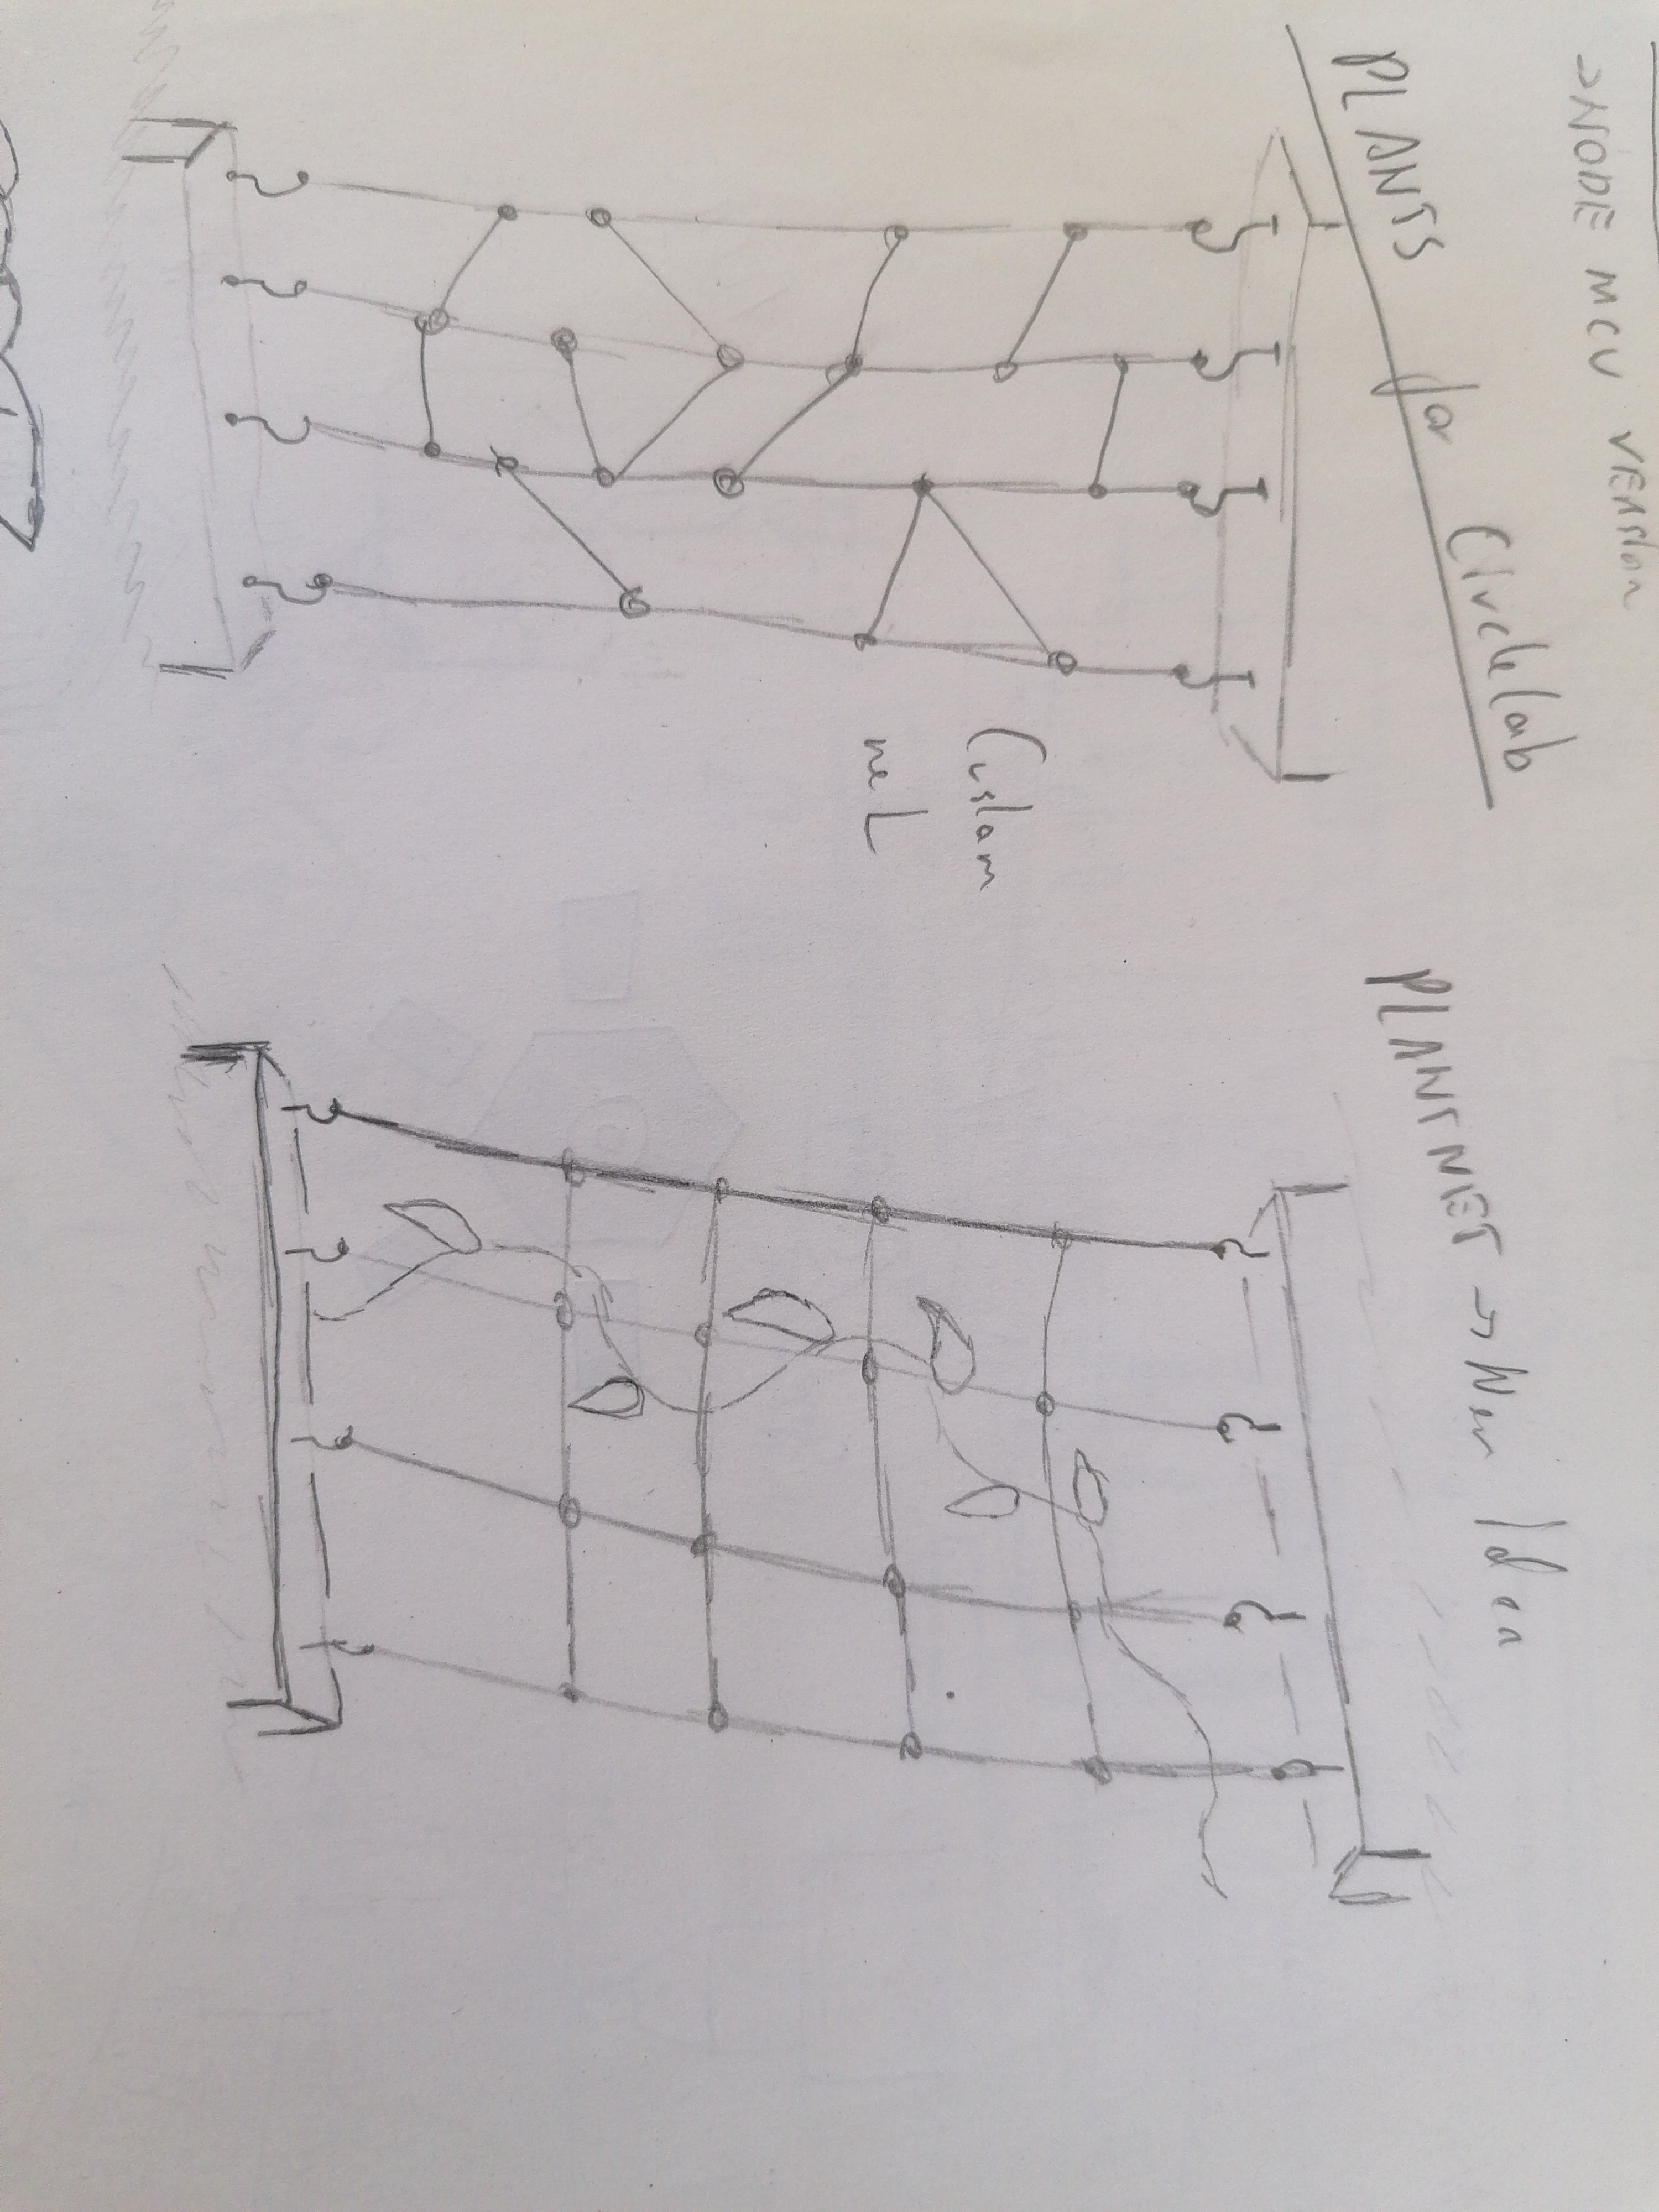 ->NODE MCU VERSION
PLANTS for Circlelab
Custom
net
PLANTNET -> New Idea